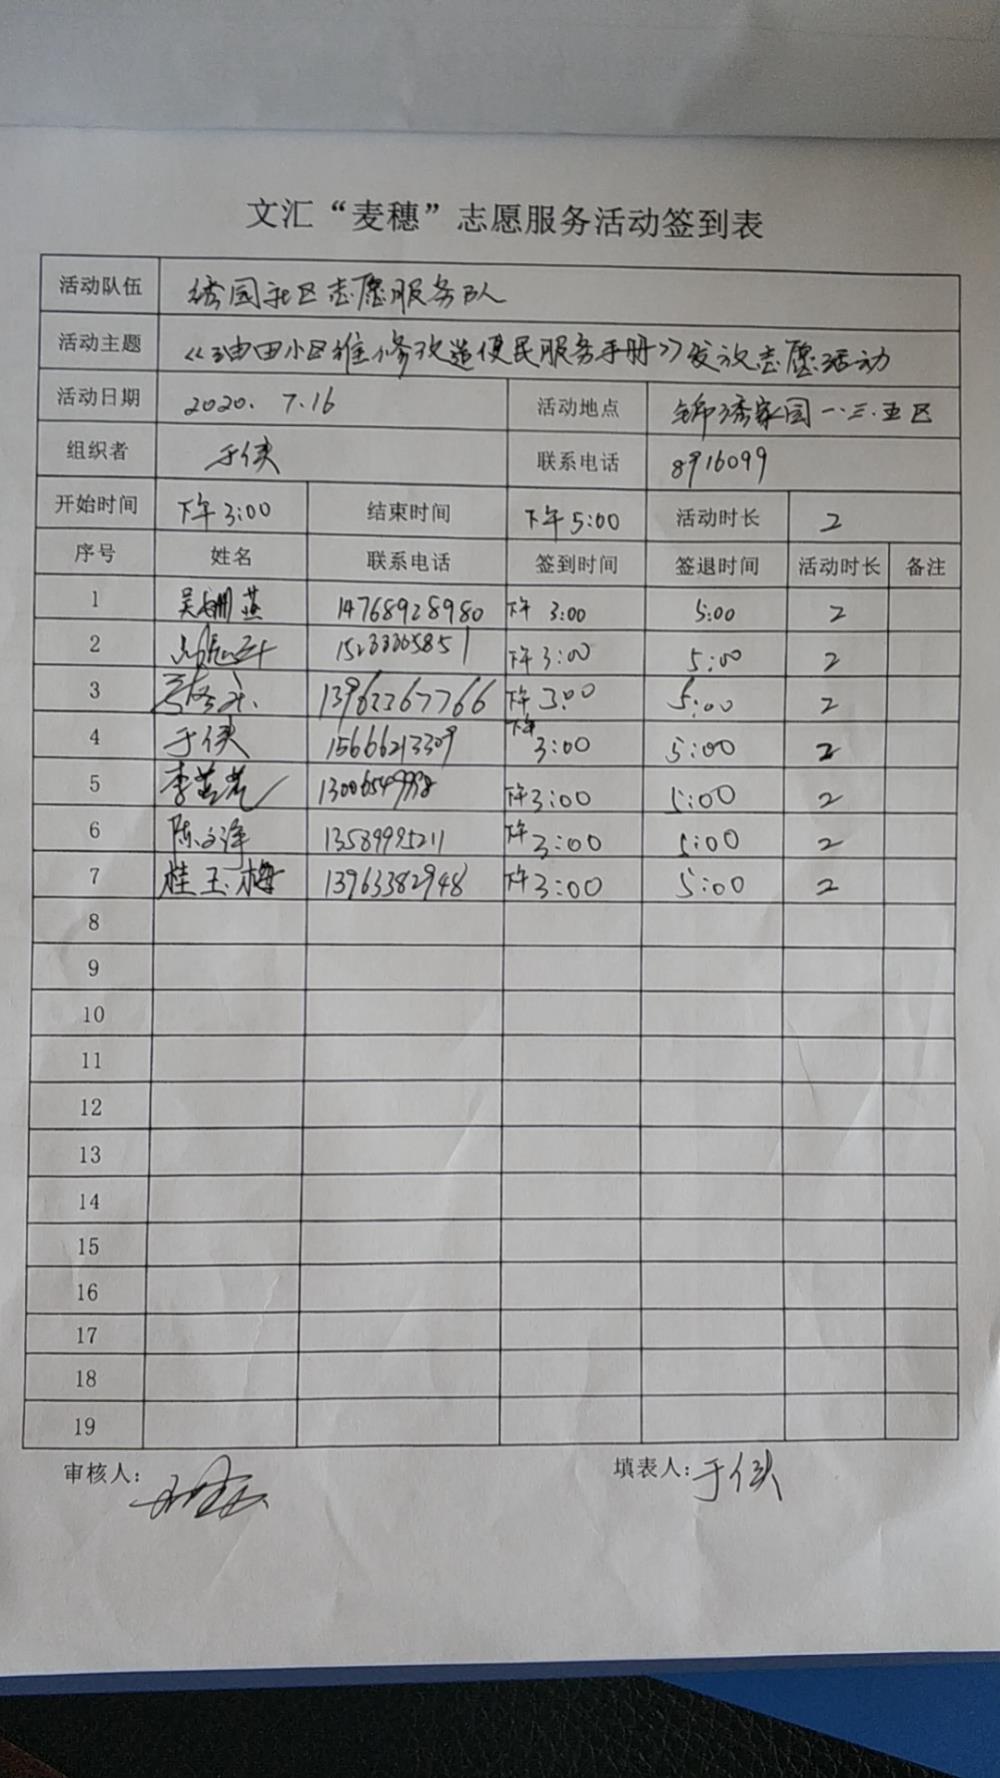 文汇“麦穗”志愿服务活动签到表
活动队伍 绣园社区志愿服务队
活动主题 《油田小区维修改造便民服务手册》发放志愿活动
活动日期 2020.7.16 活动地点 锦绣家园一.三.五区
组织者 于侠 联系电话 8916099
开始时间 下午3:00 结束时间 下午5:00 活动时长 2
序号 姓名 联系电话 签到时间 签退时间 活动时长 备注
1 吴姗燕 14768928980 下午 3:00 5:00 2
2 下午3:00 5:00 2
3 13962267766 下午3:00 5:00 2
4 于侠 15666213309 下午3:00 5:00 2
5 下午3:00 5:00 2
6 陈文洋 13589995211 下午3:00 5:00 2
7 桂玉梅 13963382948 下午3:00 5:00 2
8
9
10
11
12
13
14
15
16
17
18
19
审核人: 填表人:于侠